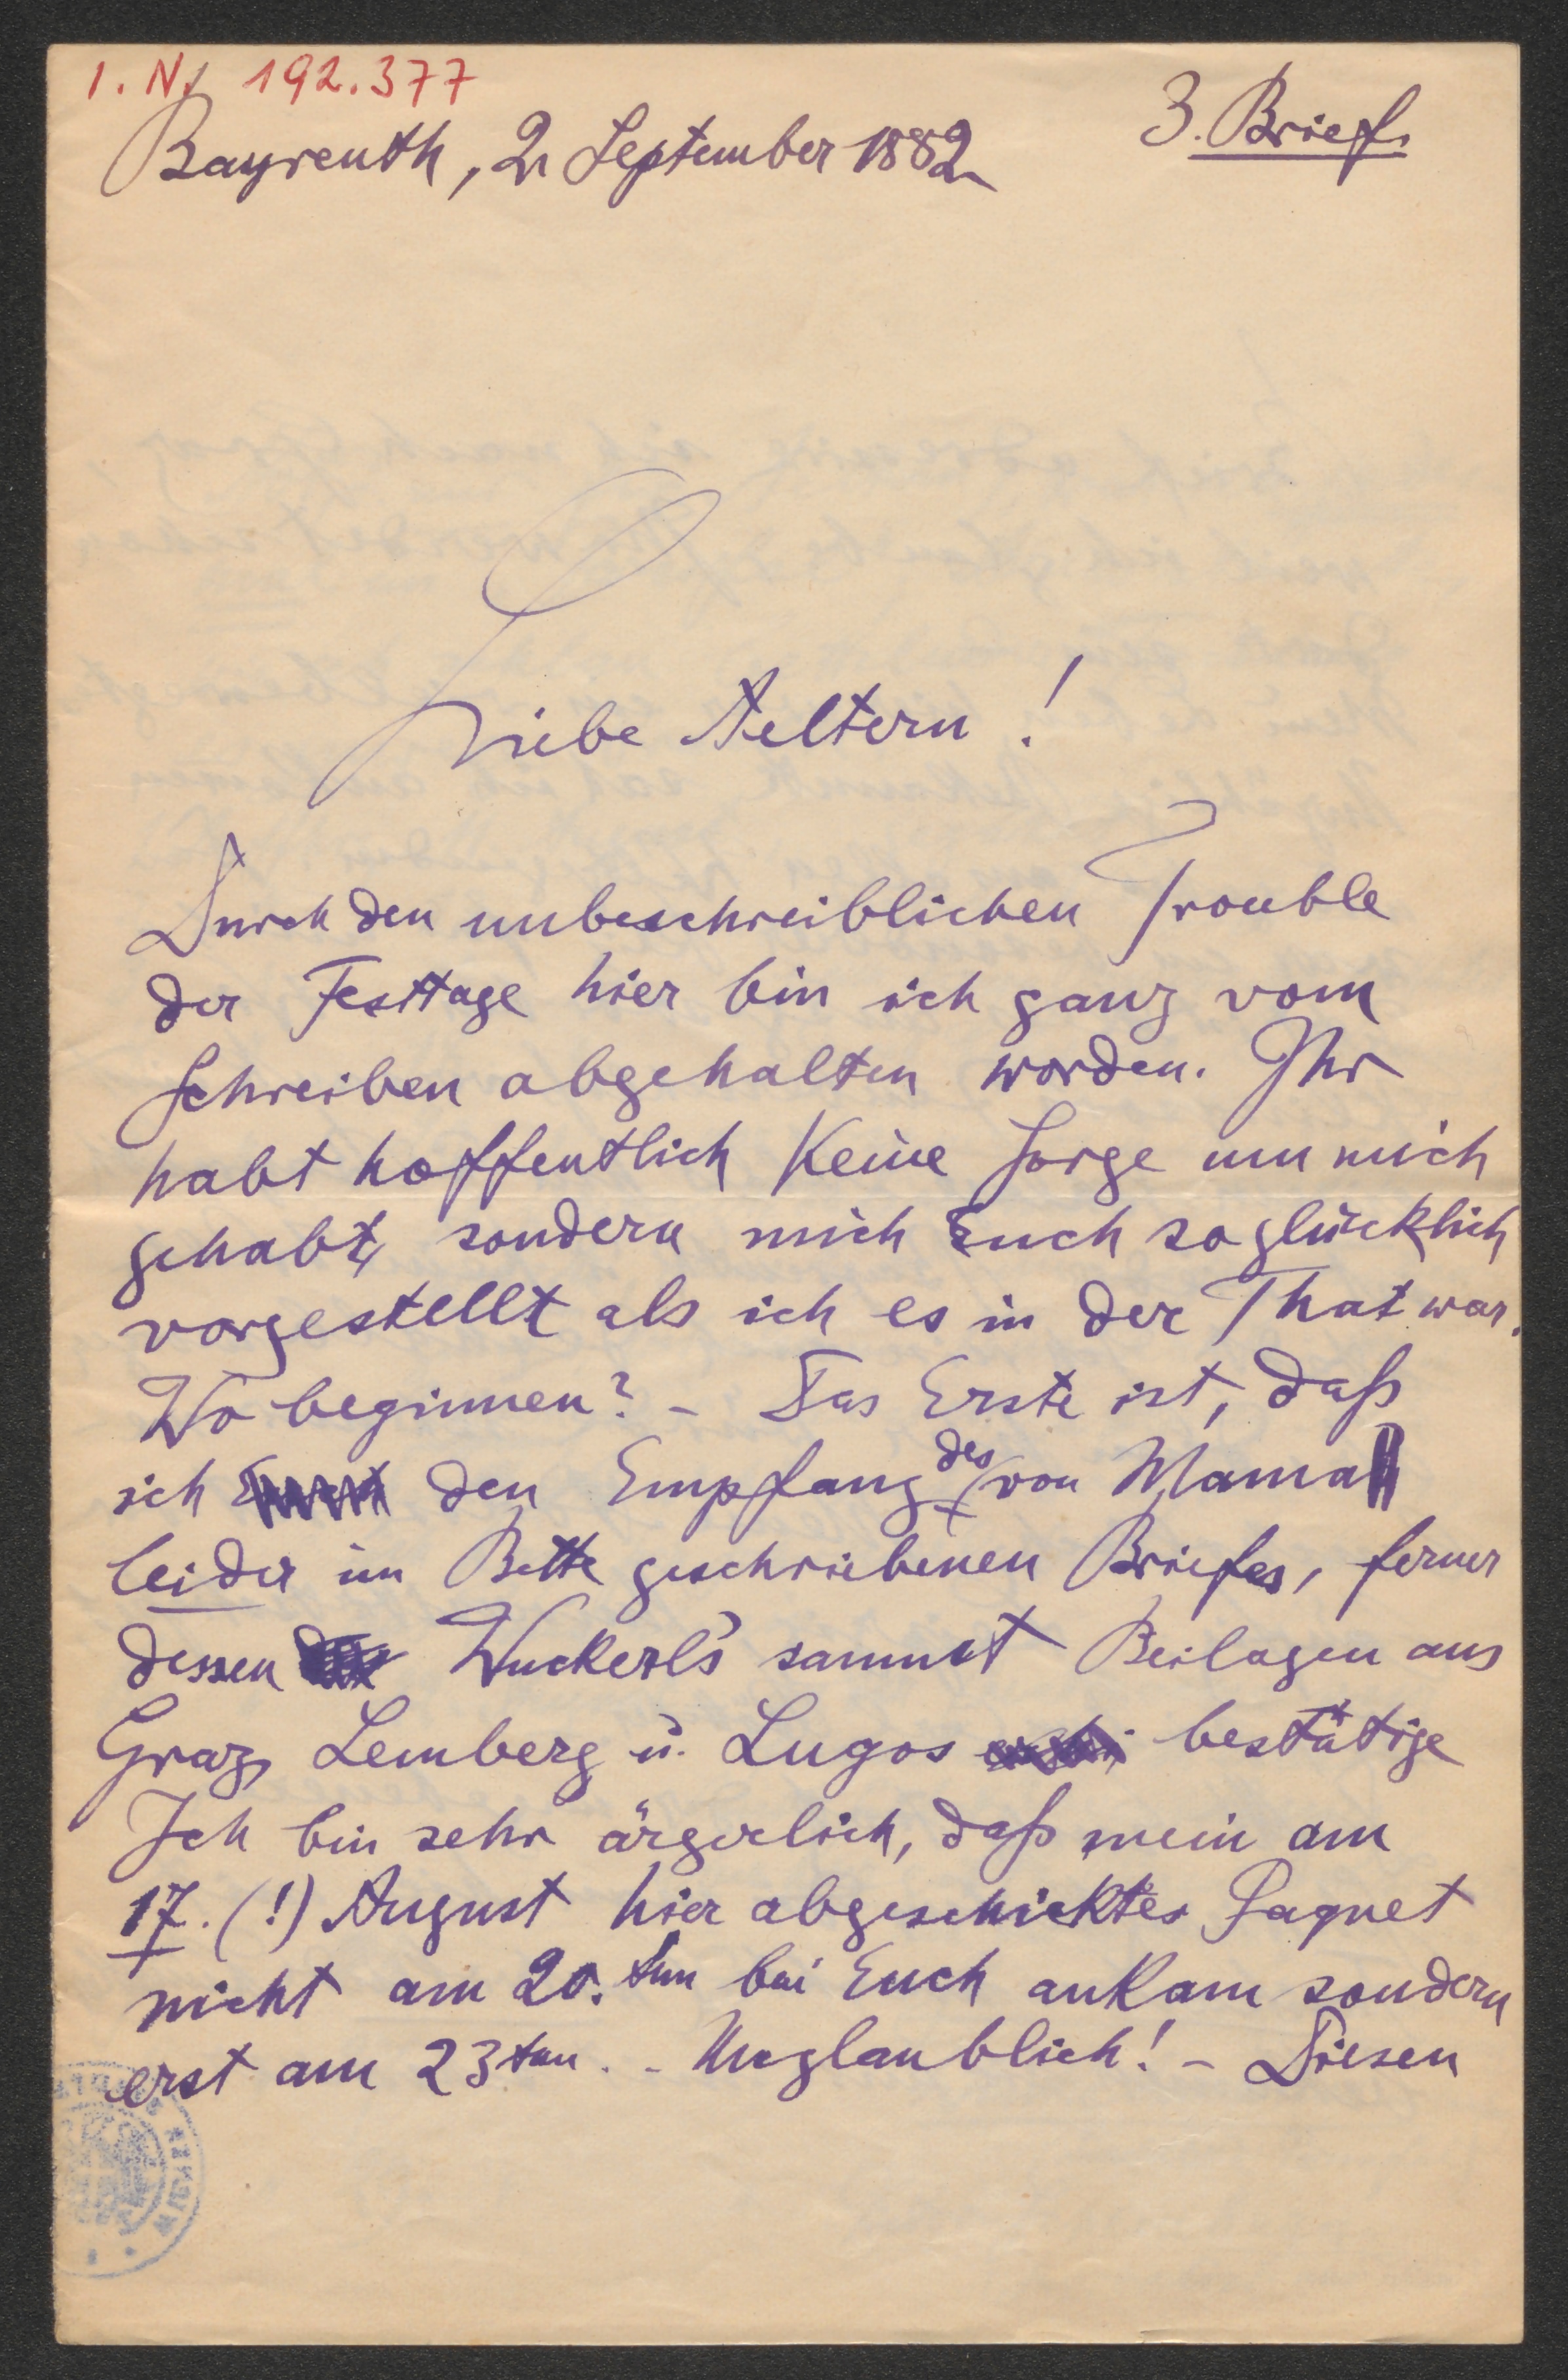 I. N. 192.377
3. Brief.
Bayreuth, 2 September 1882
Liebe Aeltern!
Durch den unbeschreiblichen Trouble
der Festtage hier bin ich ganz vom
Schreiben abgehalten worden. Ihr
habt hoffentlich Keine Sorge um mich
gehabt, sondern mich Euch so glücklich
vorgestellt als ich es in der That war.
Wo beginnen? – Das Erste ist, daß
ich den Empfang des von Mama
leider im Bette geschriebenen Briefes, ferner
dessen Wuckerl's sammt Beilagen aus
Graz, Lemberg u. Lugos bestätige
Ich bin sehr ärgerlich, daß mein am
17. (!) August hier abgeschicktes Paquet
nicht am 20. ten bei Euch ankam sondern
erst am 23ten. – Unglaublich! – Diesen